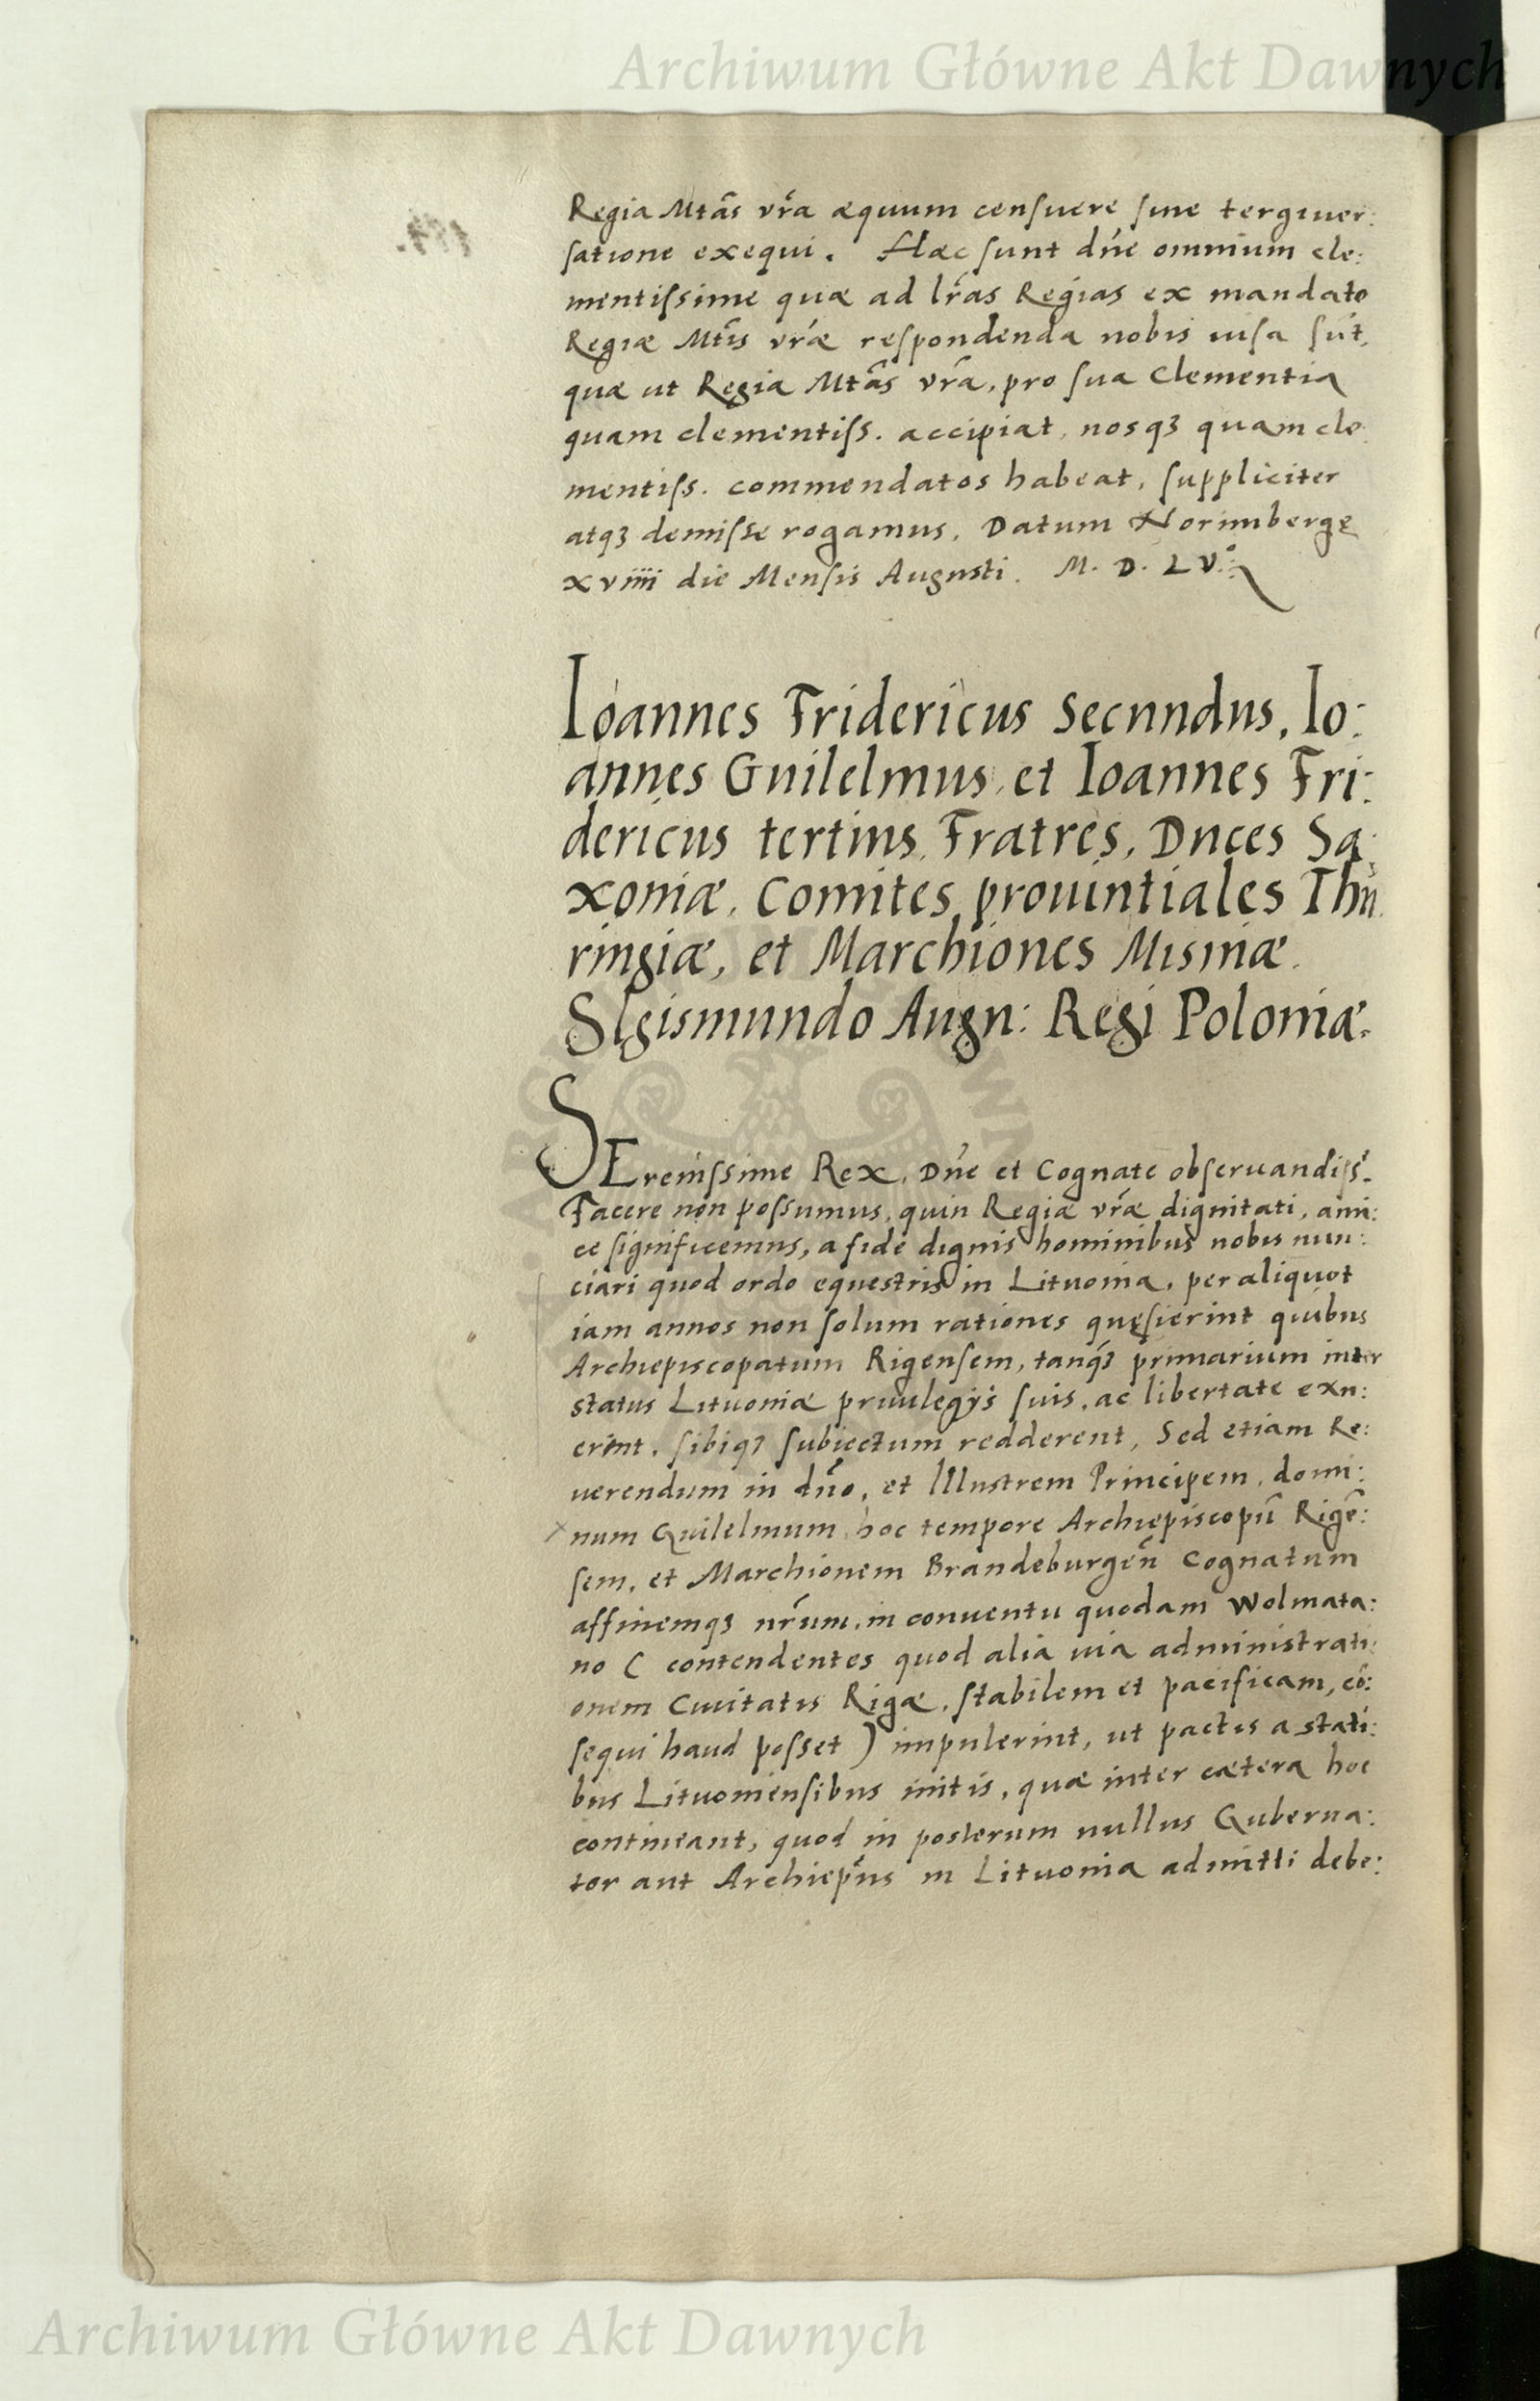 Archiwum Główne Akt Dawnych
Regia Mtãs vr̃a æquum censuere sine tergiuer:
satione exequi. Hæc sunt dñe omnium cle:
mentissime quæ ad lr̃as Regias ex mandato
Regiæ Mtĩs vr̃æ respondenda nobis uisa sũt,
quæ ut Regia Mtãs vr̃a, pro sua Clementia
quam clementiss. accipiat, nosqꝫ quam cle
mentiss. commendatos habeat, suppliciter
atqꝫ demisse rogamus. Datum Norimbergę
xviiii die Mensis Augusti. M. D. LV.º
Ioannes Fridericus Secundus, Io:
annes Guilelmus, et Ioannes Fri:
dericus tertius, Fratres, Duces Sa:
xoniæ, Comites prouintiales Thu
ringiæ, et Marchiones Misniæ.
Sigismundo Augu: Regi Poloniæ.
SErenissime Rex, Dñe et Cognate obseruandiss.
Facere non possumus, quin Regiæ vr̃æ dignitati, ami:
ce significemus, a fide dignis hominibus nobis nun:
ciari quod ordo equestris in Lituonia, per aliquot
iam annos non solum rationes quęsierint quibus
Archiepiscopatum Rigensem, tanq̃ꝫ primarium inter
status Lituoniæ priuilegijs suis, ac libertate exu:
erint, sibiqꝫ subiectum redderent, Sed etiam Re:
uerendum in dño, et Illustrem Principem, domi:
num Guilelmum hoc tempore Archiepiscopũ Rigẽ:
sem, et Marchionem Brandeburgeñ Cognatum
affinemqꝫ nr̃um, in conuentu quodam Wolmata:
no ( contendentes quod alia uia administrati:
onem Ciuitatis Rigæ, stabilem et pacificam, cõ:
sequi haud posset ) impulerint, ut pactis a stati:
bus Lituoniensibus initis, quæ inter cætera hoc
contineant, quod in posterum nullus Guberna:
tor aut Archiepũs in Lituonia admitti debe:
Archiwum Główne Akt Dawnych